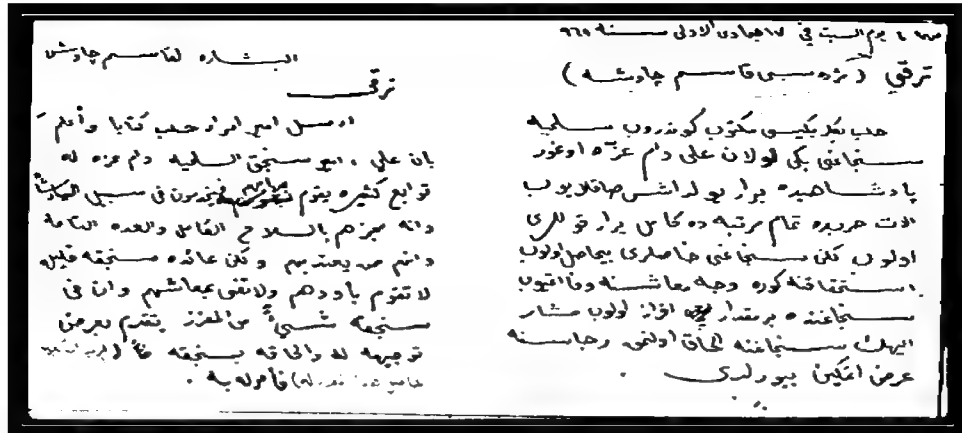 يوم السبت في ١٧ جمادى الاولى سنه ٩٦٥
ترقي ( نزده سبى قاسم چاوشه )
حلب بكلربكيسى مكتوب كوندروب سلميه
سنجاغى بكى اولان على دام عزه اوغور
پادشاهيده يرار يولداشى صاقلايوب
الات حربده تمام مرتبه ده كامل يرار قوللرى
اولوب لكن سنجاغى خاصلرى بيحاصل اولوب
استحقاقنه كوره وجه معاشنه وفا اتميوب
سنجاغنده بر مقدار افراز اولوب مشار
اليهك سنجاغنه الحاق اولنمق رجاسنه
عرض اتمكين بيورلدى .
البشاره لقاسم چاوش
ترقى
ارسل امير امراء حلب كتابا وأعلم
بان علي ، امير سنجق السلميه دام عزه له
توابع كثيره يقوم فى سبيل
وانه مجهزهم بالسلاح الكامل والعده التامة
وانهم من يعتد بهم ولكن عائده سنجقه قليل
لا تقوم بأودهم ولا تفى بمعاشهم وان فى
سنجقه شيئاً من المفرز يتقدم بعرض
توجيهه له والحاقه بسنجقه
فأمر له به .